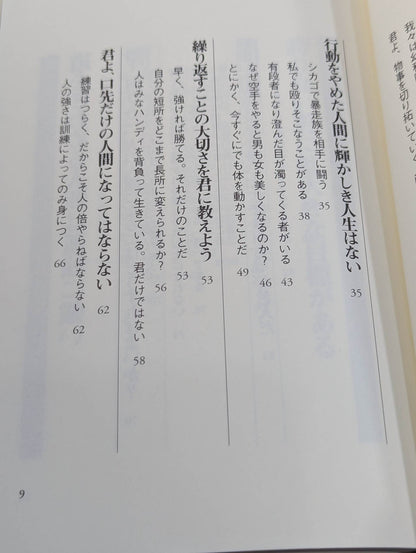 我々は幺
君よ、物事を切り拓いてい
行動をやめた人間に輝かしき人生はない 35
シカゴで暴走族を相手に闘う 35
私でも殴りそこなうことがある 38
有段者になり澄んだ目が濁ってくる者がいる 43
なぜ空手をやると男も女も美しくなるのか? 46
とにかく、今すぐにでも体を動かすことだ 49
繰り返すことの大切さを君に教えよう 53
早く、強ければ勝てる。それだけのことだ 53
自分の短所をどこまで長所に変えられるか? 56
人はみなハンディを背負って生きている。君だけではない 58
君よ、口先だけの人間になってはならない 62
練習はつらく、だからこそ人の倍やらねばならない 62
人の強さは訓練によってのみ身につく 66
9